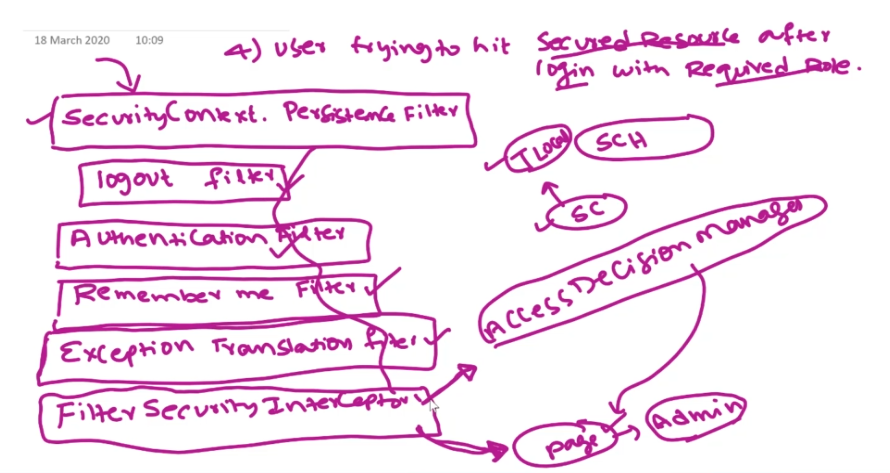 18 March 2020 10:09
4) User trying to hit Secured Resource after
login with Required Role.
SecurityContext. Persistence Filter
logout filter
Authentication Filter
Remember me Filter
Exception Translation filter
FilterSecurityInterceptor
TLocal SCH
SC
AccessDecisionManager
page
Admin